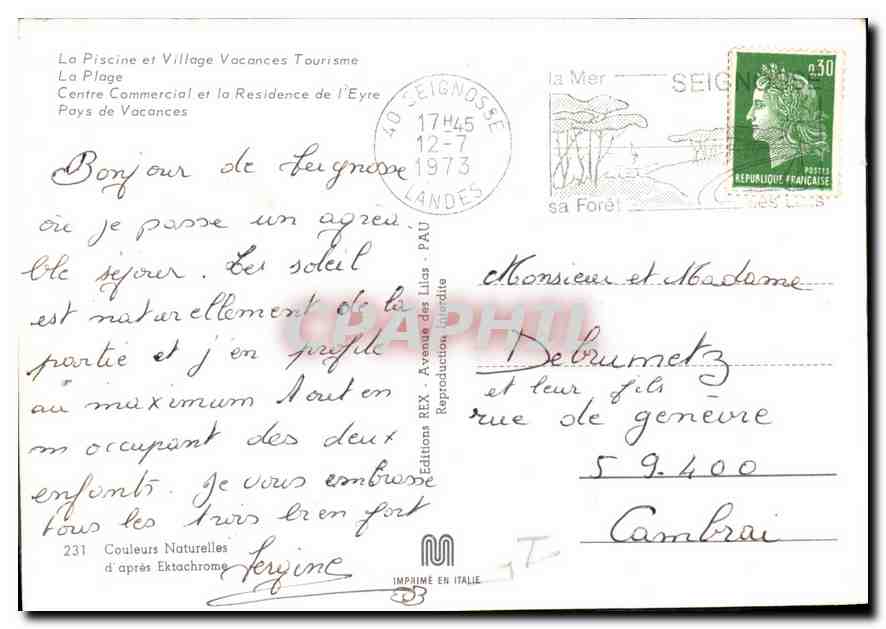 La Piscine et Village Vacances Tourisme
La Plage
Centre Commercial et la Residence de l'Eyre
Pays de Vacances
40 SEIGNOSSE
17H45
12-7
1973
LANDES
la Mer
SEIGNOSSE
sa Forêt
ses Lacs
0,30
POSTES
REPUBLIQUE FRANÇAISE
Bonjour de Seignosse
où je passe un agréa.
ble séjour. Le soleil
est naturellement de la
partie et j'en profite
au maximum tout en
m occupant des deux
enfants. Je vous embrasse
tous les trois bien fort
Sergine
231 Couleurs Naturelles
d'après Ektachrome
Editions REX - Avenue des Lilas - PAU
Reproduction Interdite
IMPRIMÉ EN ITALIE
CPAPHIL
Monsieur et Madame
Debrumetz
et leur fils
rue de genèvre
59.400
Cambrai